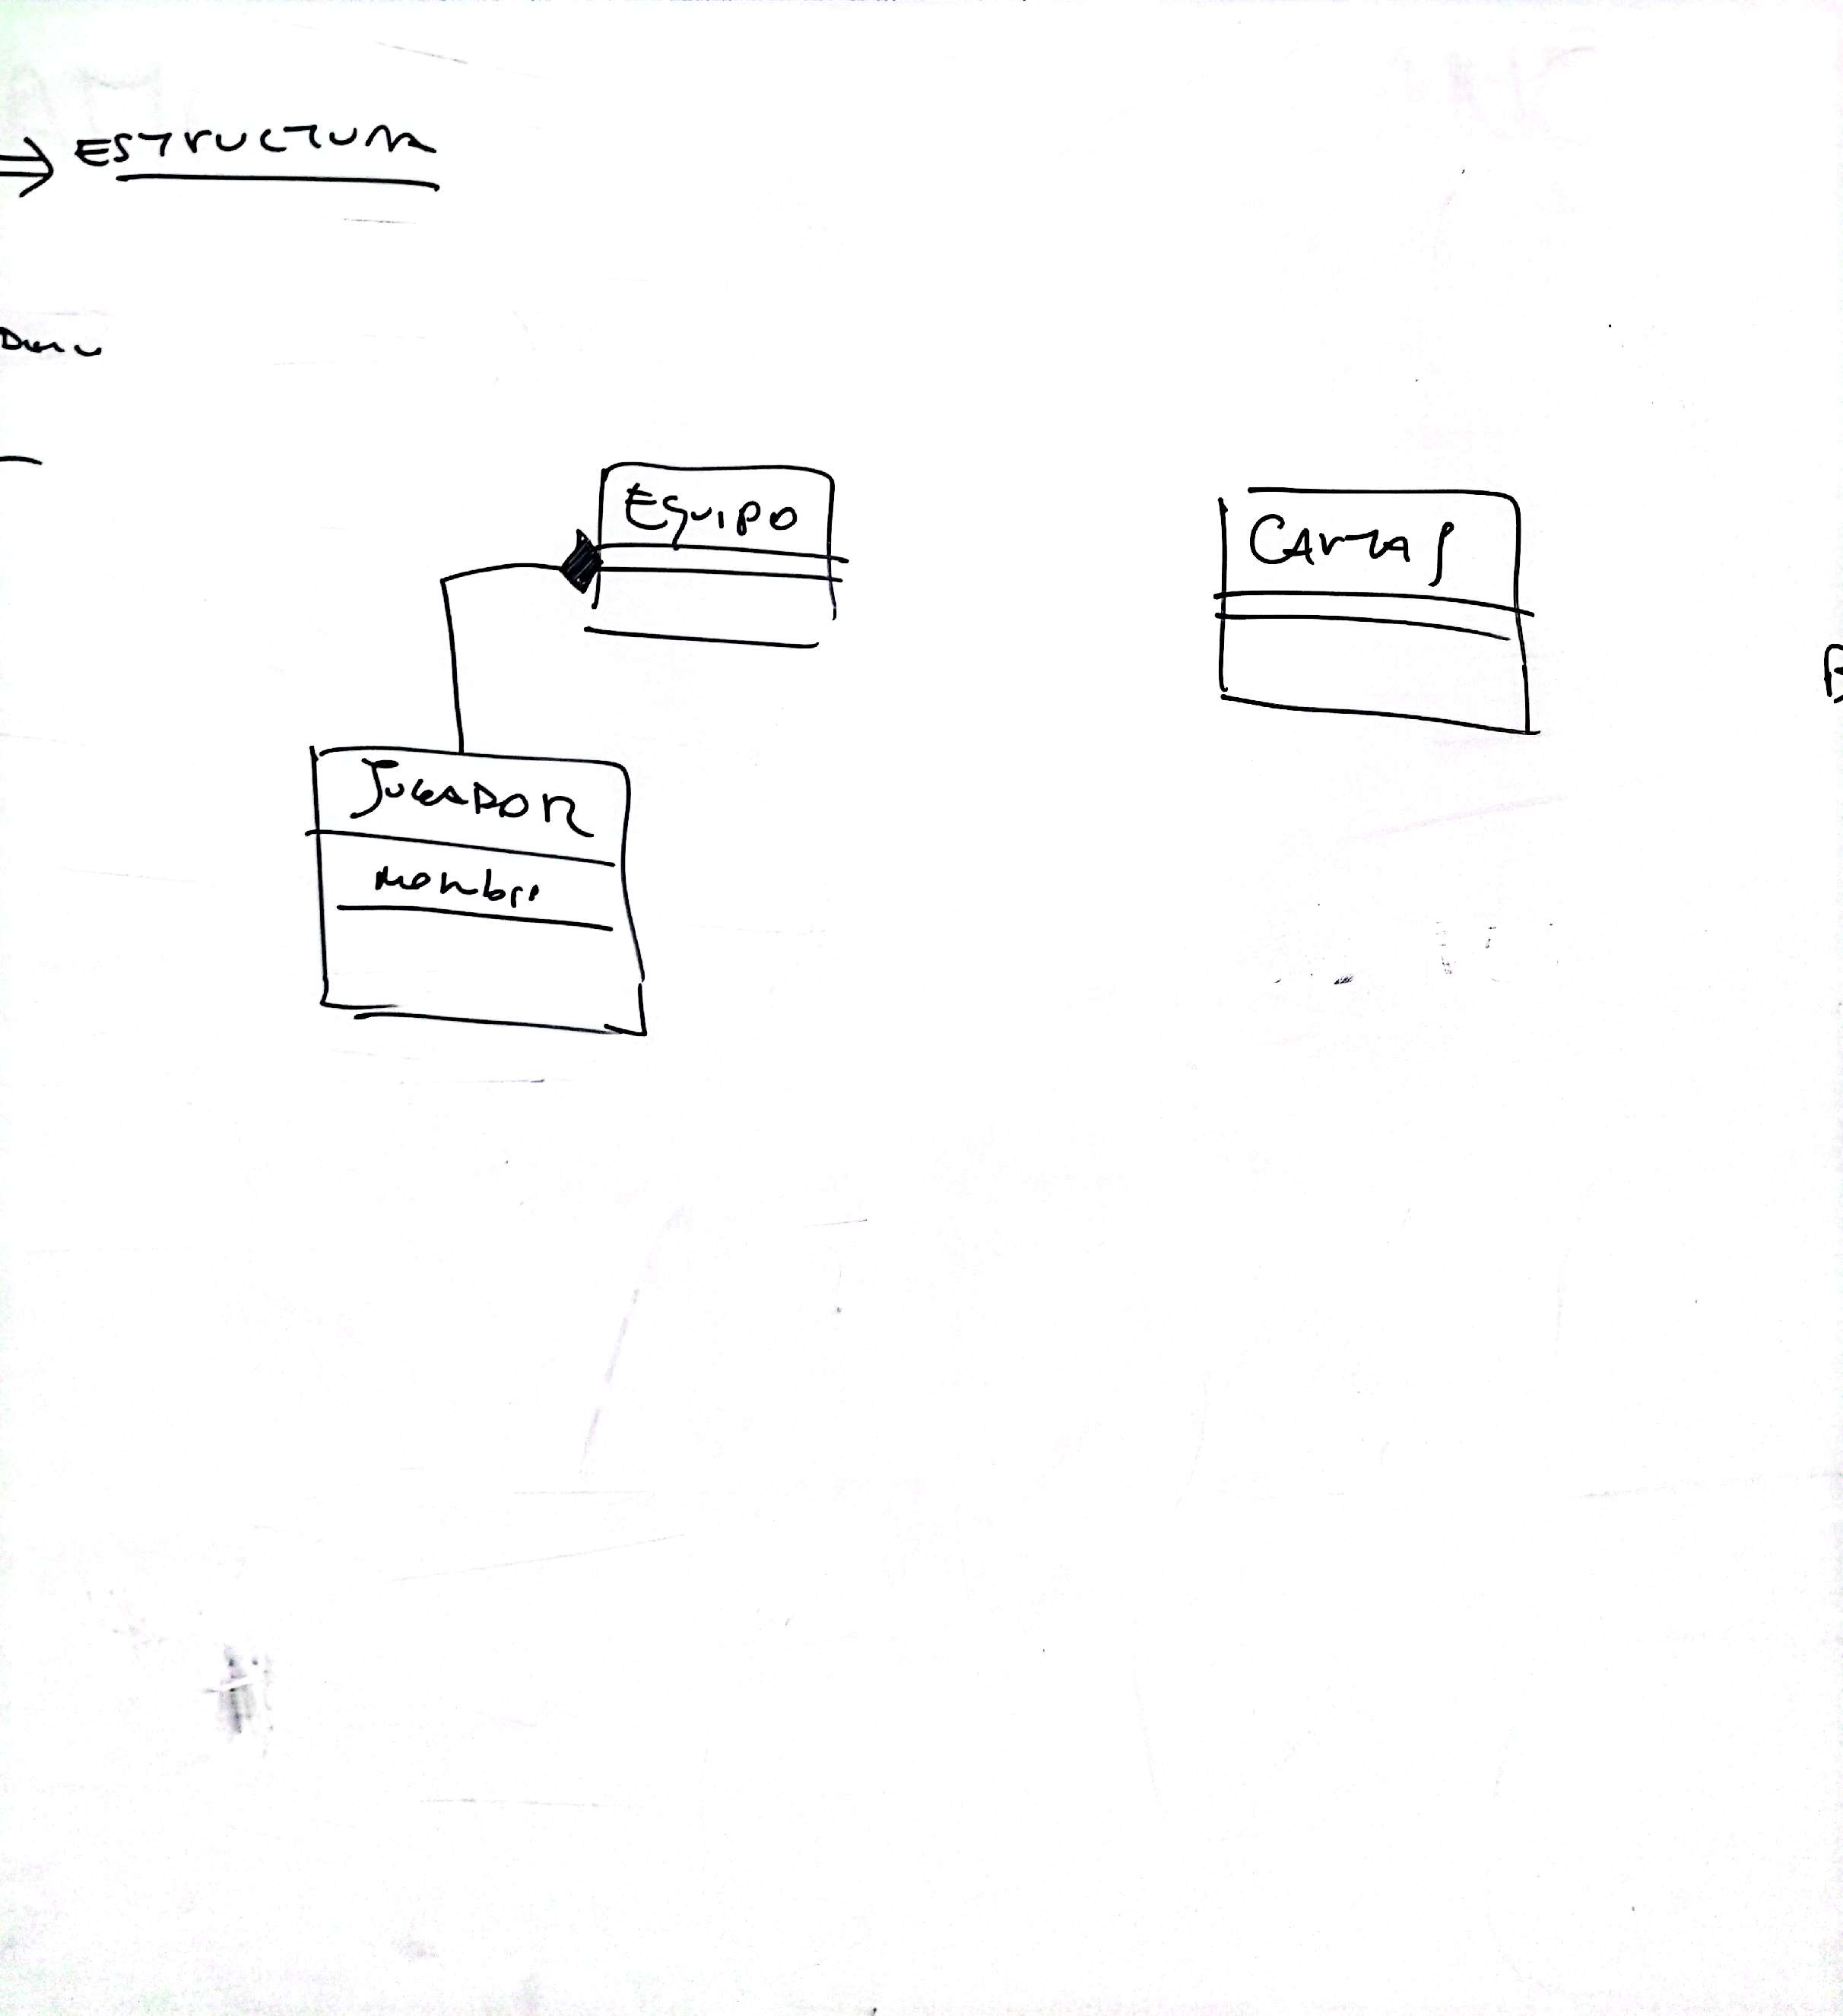 ESTRUCTURA
EQUIPO
CARTAS
JUGADOR
nombre